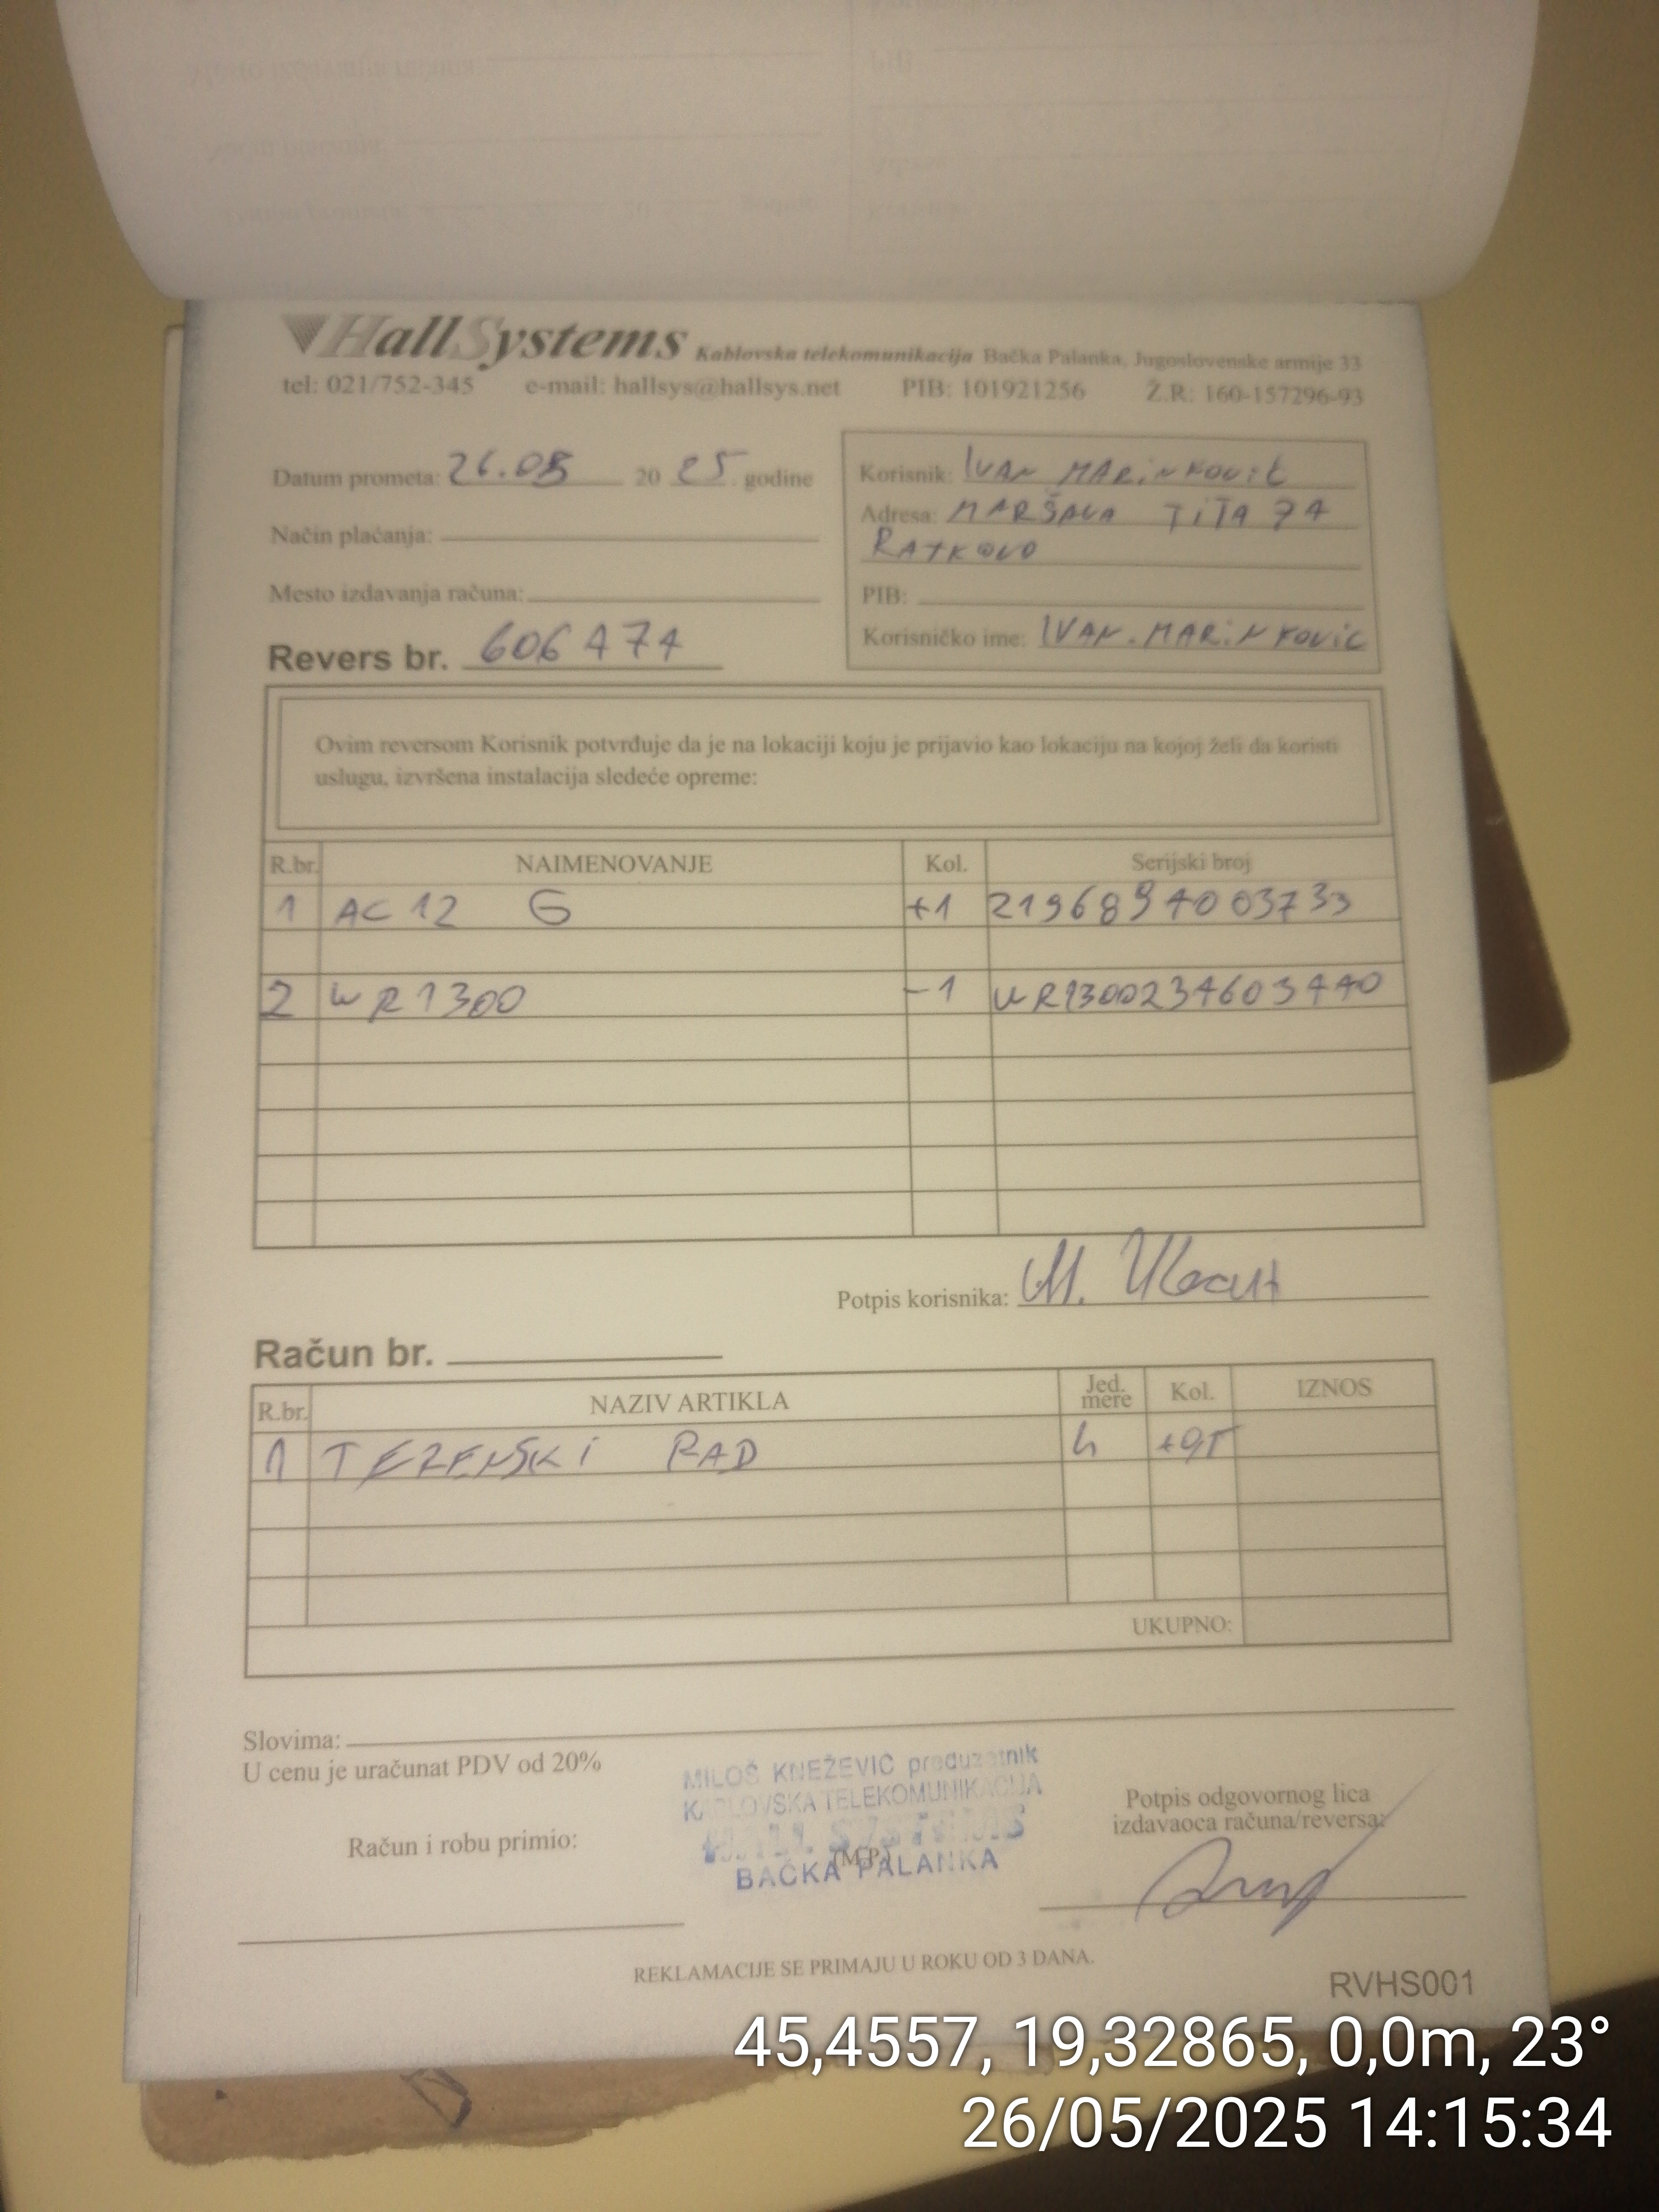 HallSystems Kablovska telekomunikacija Bačka Palanka, Jugoslovenske armije 33
tel: 021/752-345 e-mail: hallsys@hallsys.net PIB: 101921256 Ž.R: 160-157296-93
Datum prometa: 26.05 20 25 godine
Način plaćanja:
Mesto izdavanja računa:
Revers br. 606474
Korisnik: IVAN MARINKOVIĆ
Adresa: MARŠALA TITA 74
RATKOVO
PIB:
Korisničko ime: IVAN.MARINKOVIC
Ovim reversom Korisnik potvrđuje da je na lokaciji koju je prijavio kao lokaciju na kojoj želi da koristi
uslugu, izvršena instalacija sledeće opreme:
R.br. NAIMENOVANJE Kol. Serijski broj
1 AC12 G +1 2196894003733
2 WR1300 -1 WR1300234603440
Potpis korisnika:
Račun br.
R.br. NAZIV ARTIKLA Jed. mere Kol. IZNOS
1 TERENSKI RAD h
UKUPNO:
Slovima:
U cenu je uračunat PDV od 20%
MILOŠ KNEŽEVIĆ preduzetnik
KABLOVSKA TELEKOMUNIKACIJA
HALL SYSTEMS
(M.P.)
BAČKA PALANKA
Račun i robu primio:
Potpis odgovornog lica
izdavaoca računa/reversa:
REKLAMACIJE SE PRIMAJU U ROKU OD 3 DANA.
RVHS001
45,4557, 19,32865, 0,0m, 23°
26/05/2025 14:15:34